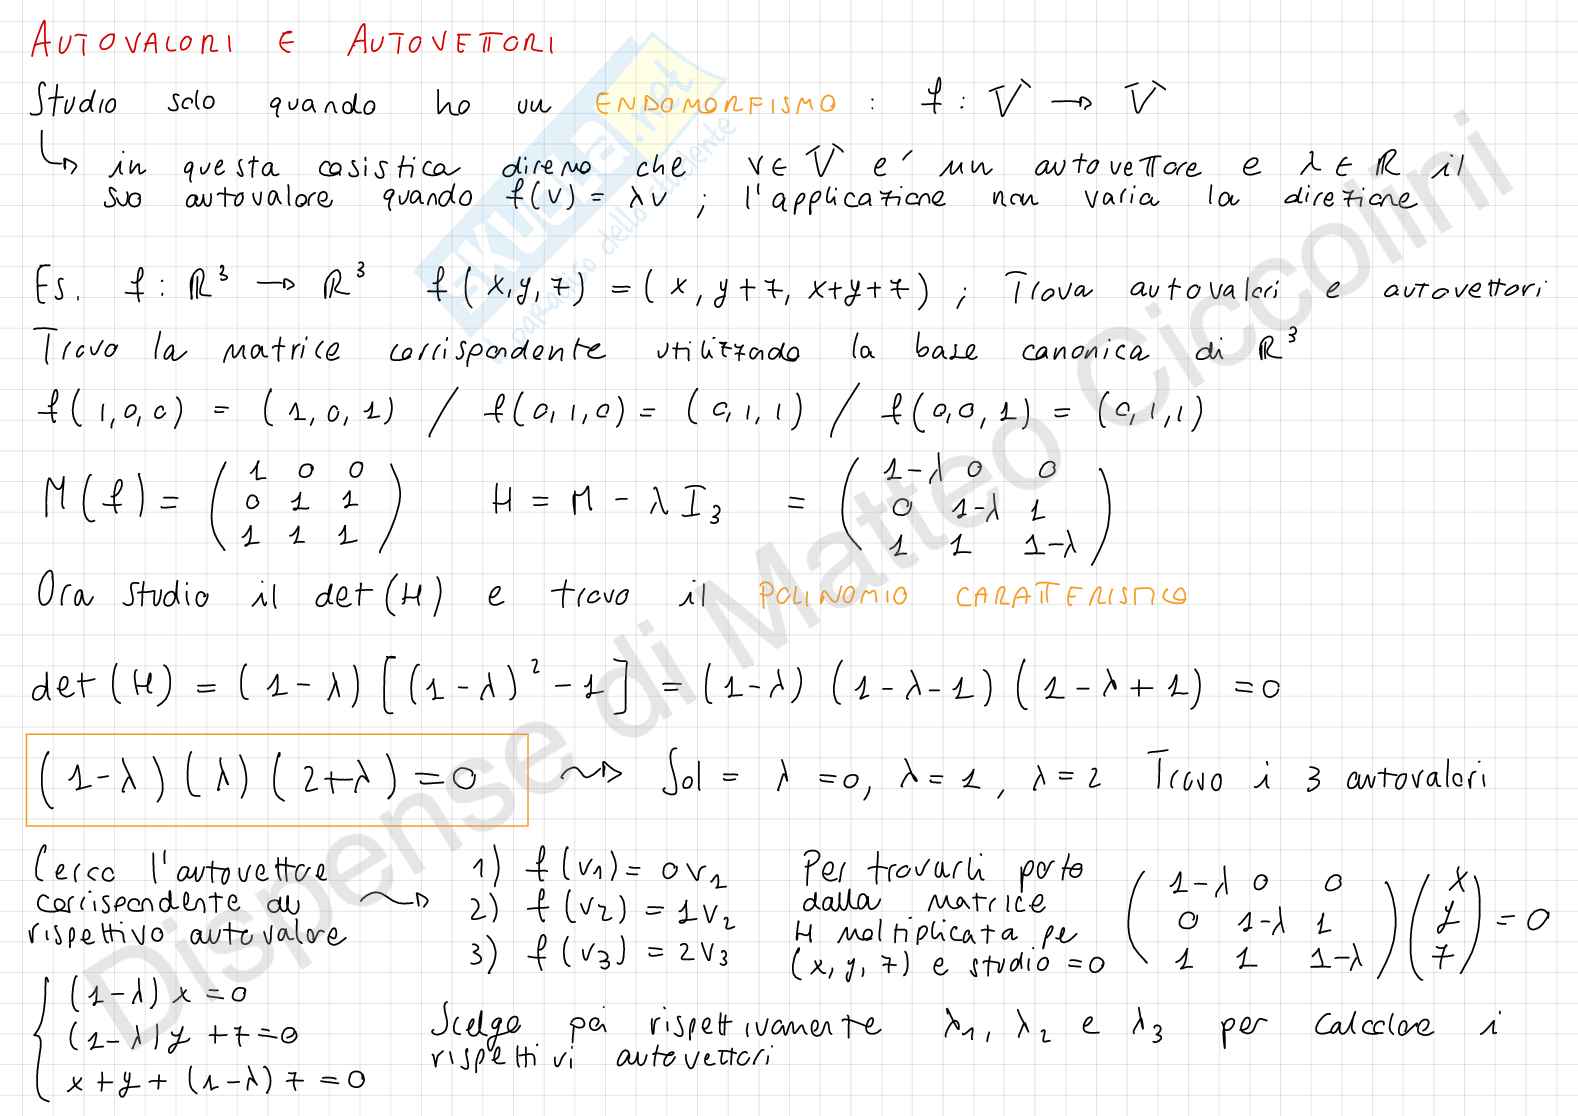 AUTOVALORI E AUTOVETTORI
Studio solo quando ho un ENDOMORFISMO : f : V → V
↳ in questa casistica diremo che v ∈ V e' un autovettore e λ ∈ ℝ il
suo autovalore quando f(v) = λv ; l'applicazione non varia la direzione
Es. f : ℝ³ → ℝ³ f(x,y,z) = (x, y+z, x+y+z) ; Trova autovalori e autovettori
Trovo la matrice corrispondente utilizzado la base canonica di ℝ³
f(1,0,0) = (1,0,1) / f(0,1,0) = (0,1,1) / f(0,0,1) = (0,1,1)
M(f) = ( 1 0 0 H = M - λI₃ = ( 1-λ 0 0
0 1 1 0 1-λ 1
1 1 1 ) 1 1 1-λ )
Ora studio il det(H) e trovo il POLINOMIO CARATTERISTICO
det(H) = (1-λ)[(1-λ)²-1] = (1-λ)(1-λ-1)(1-λ+1) = 0
(1-λ)(λ)(2+λ) = 0 ⇝ Sol = λ = 0, λ = 1, λ = 2 Trovo i 3 autovalori
Cerco l'autovettore
corrispondente al
rispettivo autovalore
1) f(v₁) = 0v₁
2) f(v₂) = 1v₂
3) f(v₃) = 2v₃
Per trovarli parto
dalla matrice
H moltiplicata pe
(x, y, z) e studio = 0
( 1-λ 0 0 ) ( x )
( 0 1-λ 1 ) ( y ) = 0
( 1 1 1-λ ) ( z )
{ (1-λ)x = 0
(1-λ)y + z = 0
x + y + (1-λ)z = 0
Scelgo poi rispettivamente λ₁, λ₂ e λ₃ per calcolare i
rispettivi autovettori
SKUOLA.net
paradiso dello studente
Dispense di Matteo Ciccolini